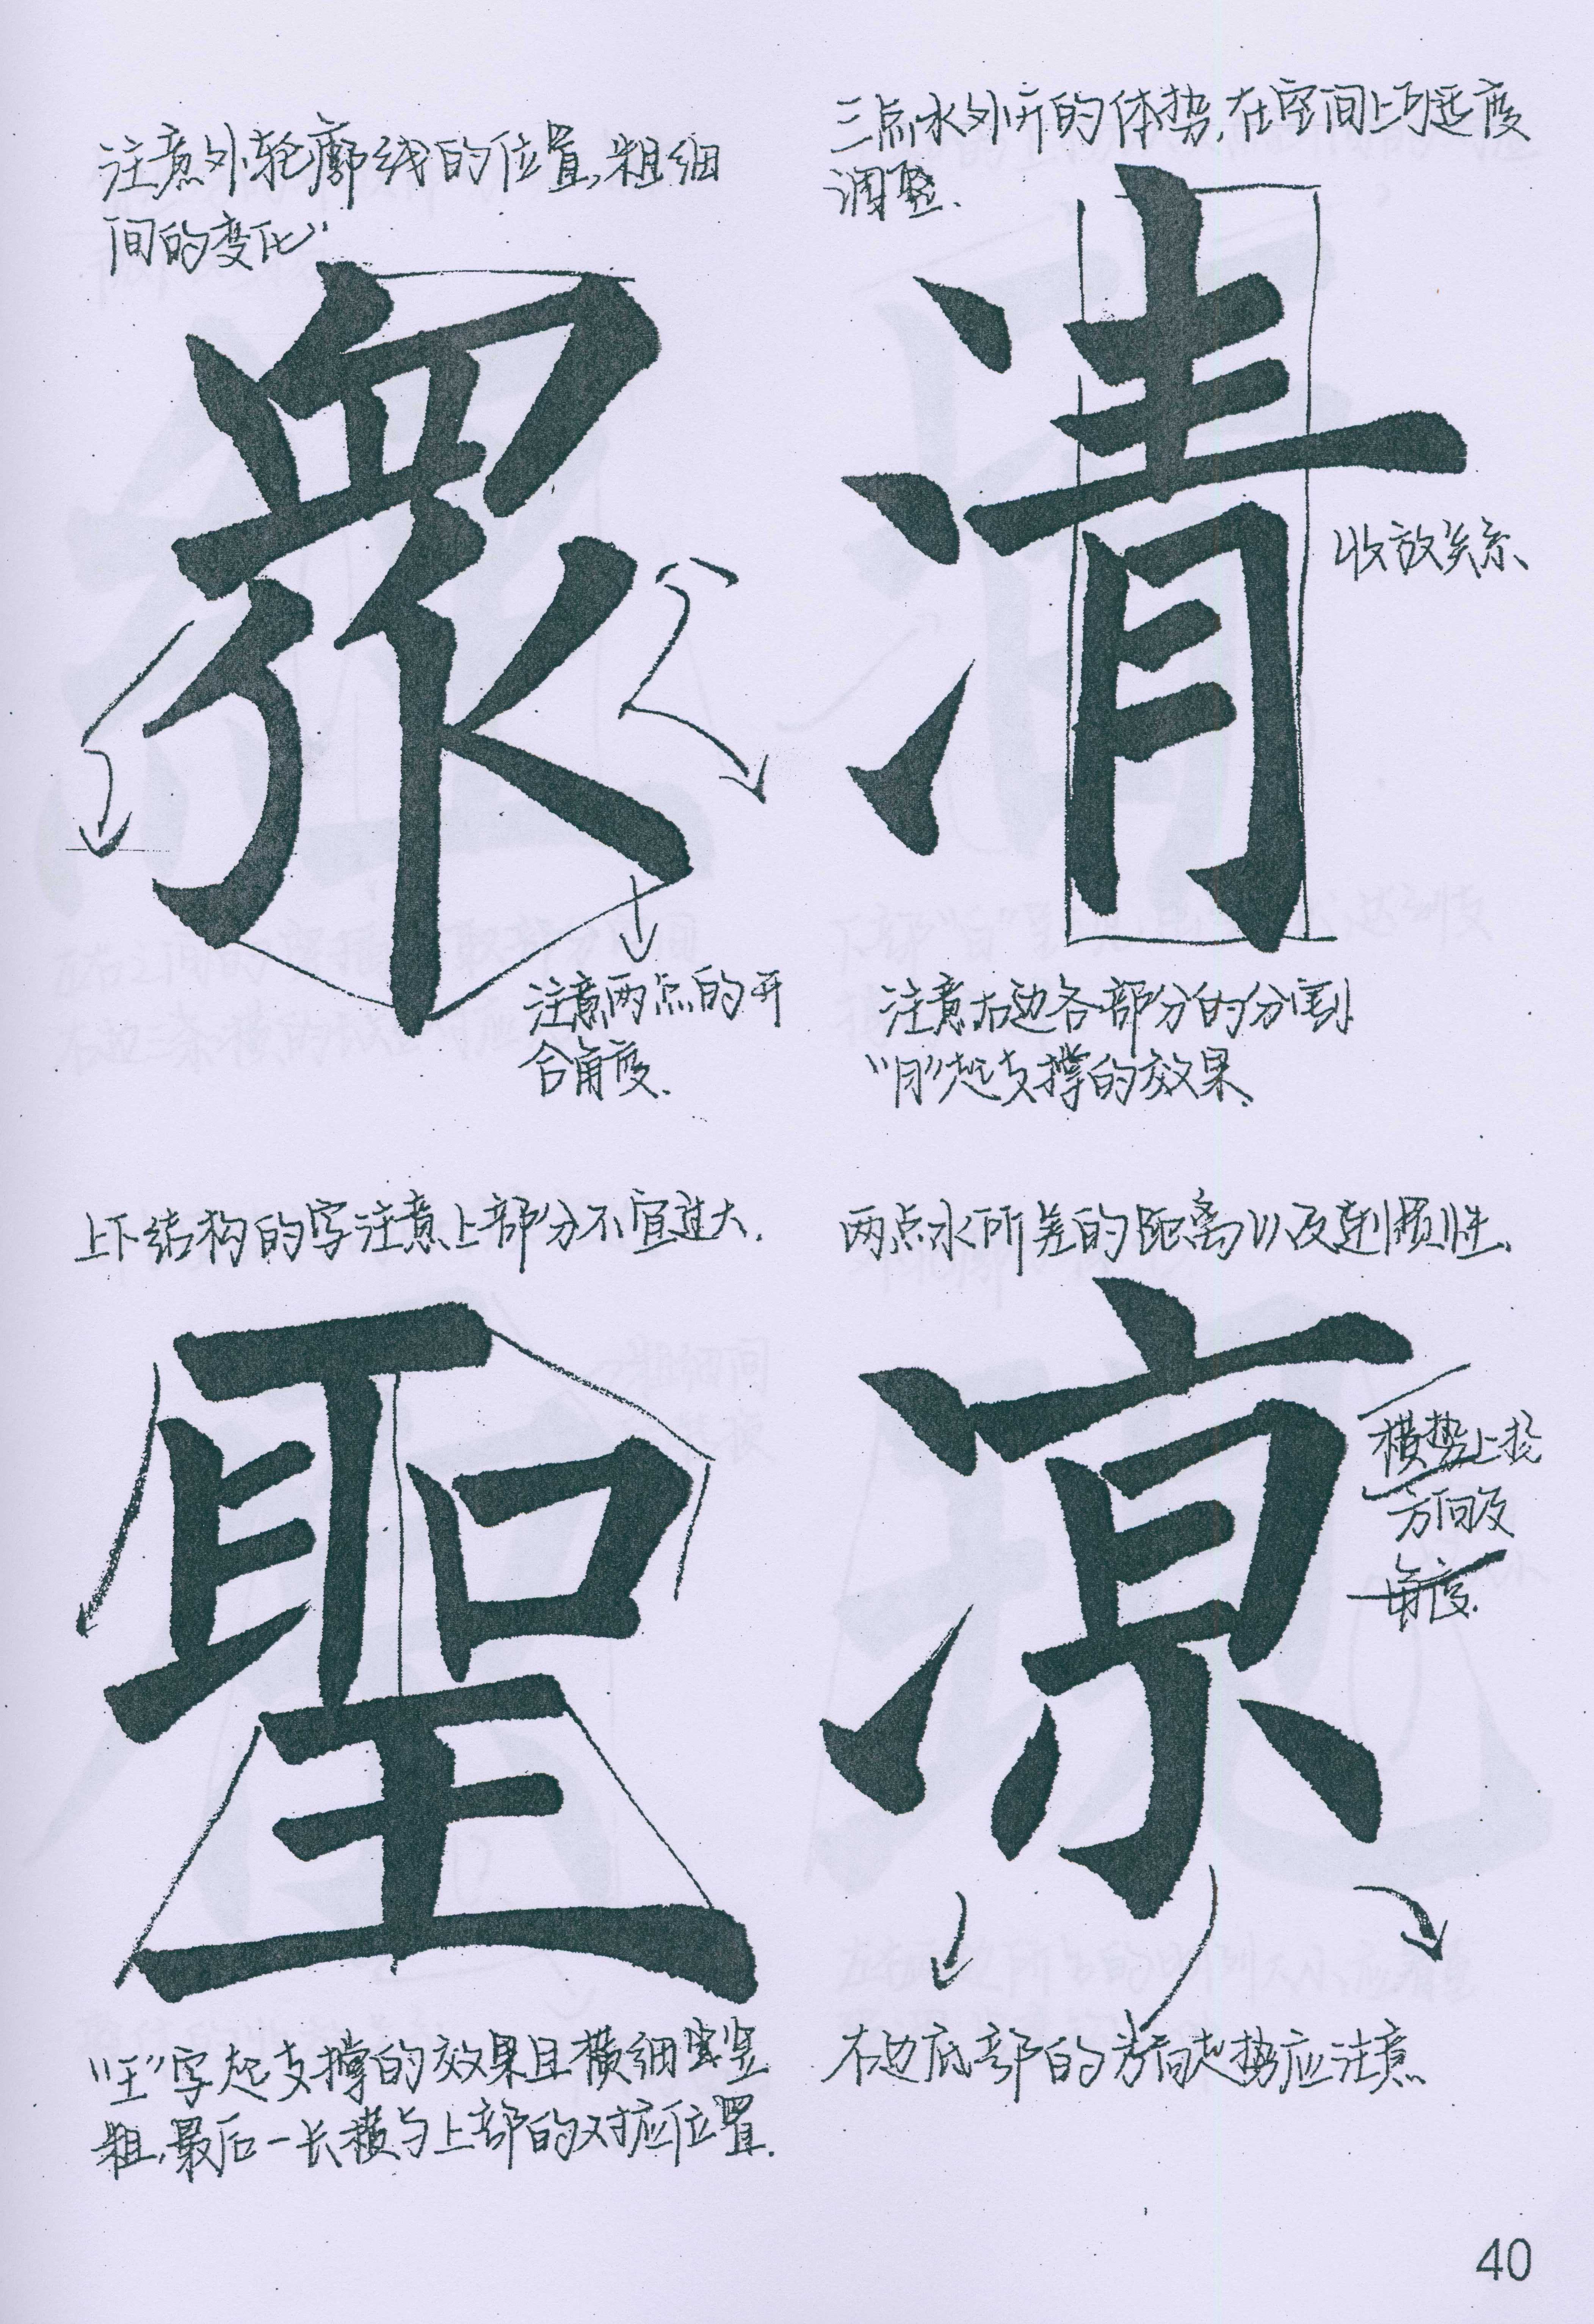 注意外轮廓线的位置,粗细
间的变化
眾
注意两点的开
合角度.
三点水外开的体势,在空间上巧适度
调整.
清
收放关系
注意右边各部分的分割
“月”起支撑的效果.
上下结构的字注意上部分不宜过大.
聖
“王”字起支撑的效果且横细竖
粗,最后一长横与上部的对应位置.
两点水所差的距离以及惯性.
凉
横势上扬
方向及
角度.
右边底部的方向走势应注意.
40